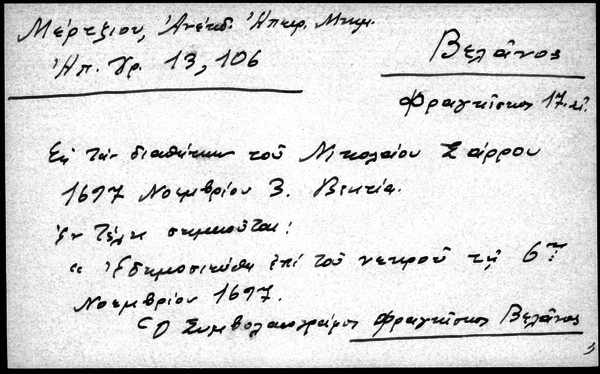 Μέρτζιου, Ἀνέκδ. Ἠπειρ. Μνημ.
Ἠπ. Χρ. 13, 106
Βελᾶνος
Φραγκῖσκος 17. αἰ.
Ἐκ τῆς διαθήκης τοῦ Νικολαίου Σάρρου
1697 Νοεμβρίου 3. Βενετία.
Ἐν τέλει σημειοῦται:
" Ἐδημοσιεύθη ἐπὶ τοῦ νεκροῦ τῇ 6ῃ
Νοεμβρίου 1697.
Ὁ Συμβολαιογράφος Φραγκῖσκος Βελᾶνος